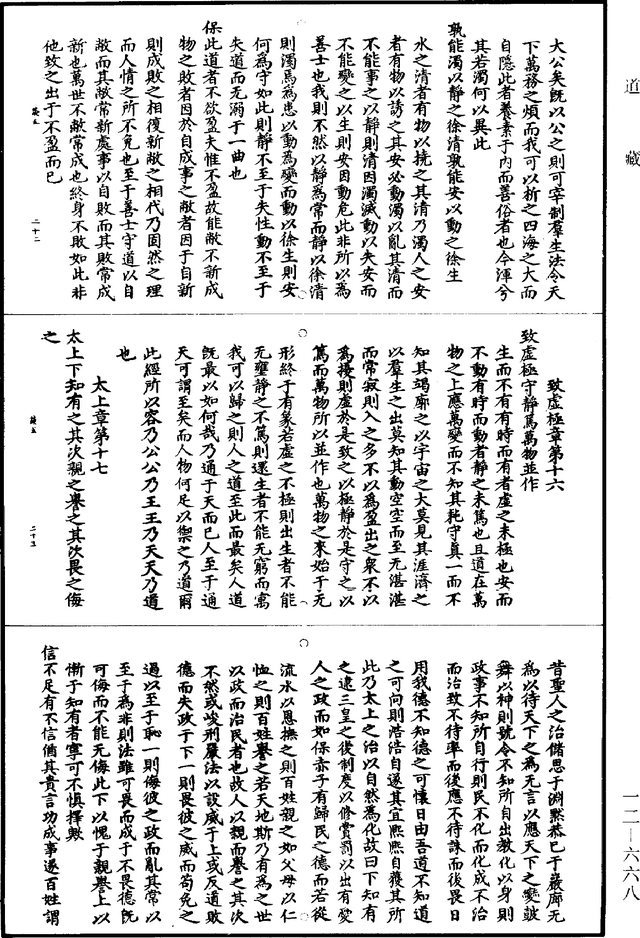 道藏
大公矣既以公之則可宰制羣生法令天
下萬務之煩而我可以析之四海之大而
自隱此者養素于內而善俗者也今渾兮
其若濁何以異此
孰能濁以靜之徐清孰能安以動之徐生
水之清者有物以撓之其清乃濁人之安
者有物以誘之其安必動濁以亂其清而
不能事之以靜則清因濁滅動以失安而
不能變之以生則安因動危此非所以為
善士也我則不然以靜為常而靜以徐清
則濁焉為患以動為變而動以徐生則安
何為守如此則靜不至于失性動不至于
失道而无溺于一曲也
保此道者不欲盈夫惟不盈故能敝不新成
物之敗者因於自成事之敝者因于自新
則成敗之相復新敝之相代乃固然之理
而人情之所不免也至于善士守道以自
敝而其敝常新處事以自敗而其敗常成
新也萬世不敝常成也終身不敗如此非
他致之出于不盈而已
二十二
致虛極章第十六
致虛極守靜篤萬物並作
生而不有有時而有者虛之未極也安而
不動有時而動者靜之未篤也且道在萬
物之上應萬變而不知其耗守真一而不
知其竭廓之以宇宙之大莫見其涯濟之
以羣生之出莫知其動空空而至无湛湛
而常寂則入之多不以為盈出之衆不以
為擾則虛於是致之以極靜於是守之以
篤而萬物所以並作也萬物之來始于无
形終于有象若虛之不極則出生者不能
无壅靜之不篤則還生者不能无窮而寓
我可以歸之則人之道至此而最矣人道
既最以如何哉乃通于天而已人至于通
天可謂至矣而人物何足以禦之乃道爾
此經所以容乃公公乃王王乃天天乃道
也
太上章第十七
太上下知有之其次親之譽之其次畏之侮
之
二十三
昔聖人之治儲思于淵默恭己于巖廊无
為以待天下之為无言以應天下之變鼓
舞以神則號令不知所自出教化以身則
政事不知所自行則民不化而化成不治
而治致不待率而後應不待誅而後畏日
用我德不知德之可懷日由吾道不知道
之可向則浩浩自遂其宜熙熙自獲其所
此乃太上之治以自然為化故曰下知有
之逮三皇之後制度以修賞罰以出有愛
人之政而如保赤子有歸民之德而若從
流水以恩撫之則百姓親之如父母以仁
恤之則百姓譽之若天地斯乃有為之世
以政而治民者也故人以親而譽之其次
不然或峻刑嚴法以設威于上或反道敗
德而失政于下一則畏彼之威而苟免之
過以至于恥一則侮彼之政而亂其常以
至于為非則法雖可畏而成于不畏德既
可侮而不能无侮此下以愧于親譽上以
慚于知有者寧可不慎擇歟
信不足有不信猶其貴言功成事遂百姓謂
一二—六六八